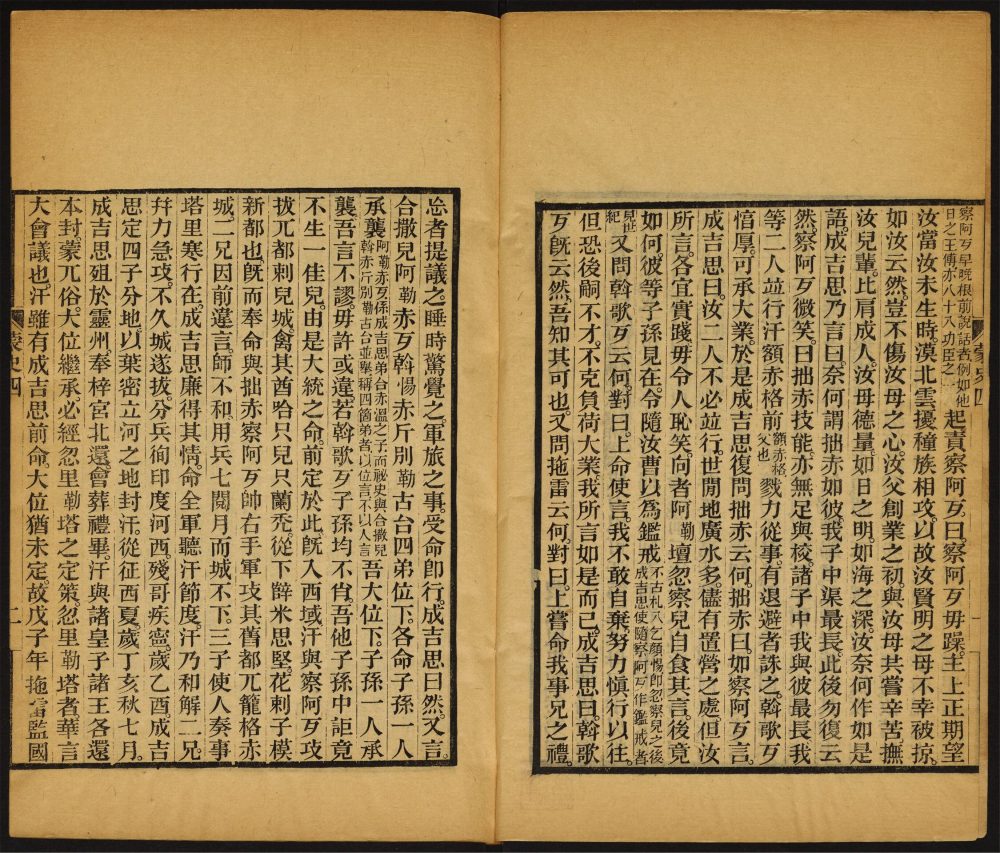 察阿歹早晚根前說話者例如他
日之王傅亦八十八功臣之一
起責察阿歹曰察阿歹毋躁主上正期望
汝當汝未生時漠北雲擾種族相攻以故汝賢明之母不幸被掠
如汝云然豈不傷汝母之心汝父創業之初與汝母共嘗辛苦撫
汝兒輩比肩成人汝母德量如日之明如海之深汝奈何作如是
語成吉思乃言曰奈何謂拙赤如彼我子中渠最長此後勿復云
然察阿歹微笑曰拙赤技能亦無足與校諸子中我與彼最長我
等二人竝行汗額赤格前
額赤格
父也
戮力從事有退避者誅之斡歌歹
悁厚可承大業於是成吉思復問拙赤云何拙赤曰如察阿歹言
成吉思曰汝二人不必竝行世閒地廣水多儘有置營之處但汝
所言各宜實踐毋令人恥笑向者阿勒壇忽察兒自食其言後竟
如何彼等子孫見在今隨汝曹以爲鑑戒
不古札八乞顏惕卽忽察兒之後
成吉思使隨察阿歹作鑑戒者
見世
紀
又問斡歌歹云何對曰上命使言我不敢自棄努力愼行以往
但恐後嗣不才不克負荷大業我所言如是而已成吉思曰斡歌
歹旣云然吾知其可也又問拖雷云何對曰上嘗命我事兄之禮
蒙史四
忩者提議之睡時驚覺之軍旅之事受命卽行成吉思曰然又言
合撒兒阿勒赤歹斡惕赤斤別勒古台四弟位下各命子孫一人
承襲
阿勒赤歹係成吉思弟合赤溫之子而祕史與合撒兒
斡赤斤別勒古台並舉稱四箇弟者以位言不以人言
吾大位下子孫一人承
襲吾言不謬毋許或違若斡歌歹子孫均不肖吾他子孫中詎竟
不生一佳兒由是大統之命前定於此旣入西域汗與察阿歹攻
拔兀都剌兒城禽其酋哈只兒只蘭禿從下辥米思堅花剌子模
新都也旣而奉命與拙赤察阿歹帥右手軍攻其舊都兀籠格赤
城二兄因前違言師不和用兵七閱月而城不下三子使人奏事
塔里寒行在成吉思廉得其情命全軍聽汗節度汗乃和解二兄
幷力急攻不久城遂拔分兵徇印度河西殘哥疾寧歲乙酉成吉
思定四子分地以葉密立河之地封汗從征西夏歲丁亥秋七月
成吉思殂於靈州奉梓宮北還會葬禮畢汗與諸皇子諸王各還
本封蒙兀俗大位繼承必經忽里勒塔之定策忽里勒塔者華言
大會議也汗雖有成吉思前命大位猶未定故戊子年拖雷監國
蒙史四
二